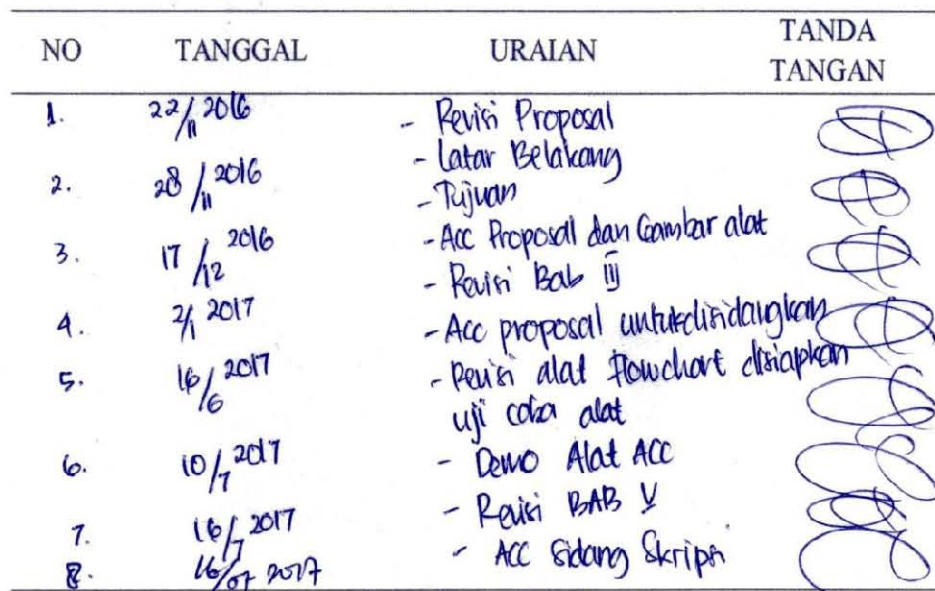 NO TANGGAL URAIAN TANDA TANGAN
1. 22/11 2016 - Revisi Proposal
- Latar Belakang
2. 28/11 2016 - Tujuan
- Acc Proposal dan Gambar alat
3. 17/12 2016 - Revisi Bab III
4. 2/1 2017 - Acc proposal untuk disidangkan
5. 16/6 2017 - Revisi alat Flowchart disiapkan
uji coba alat
6. 10/7 2017 - Demo Alat ACC
- Revisi BAB V
7. 16/7 2017 - ACC Sidang Skripsi
8. 16/07 2017